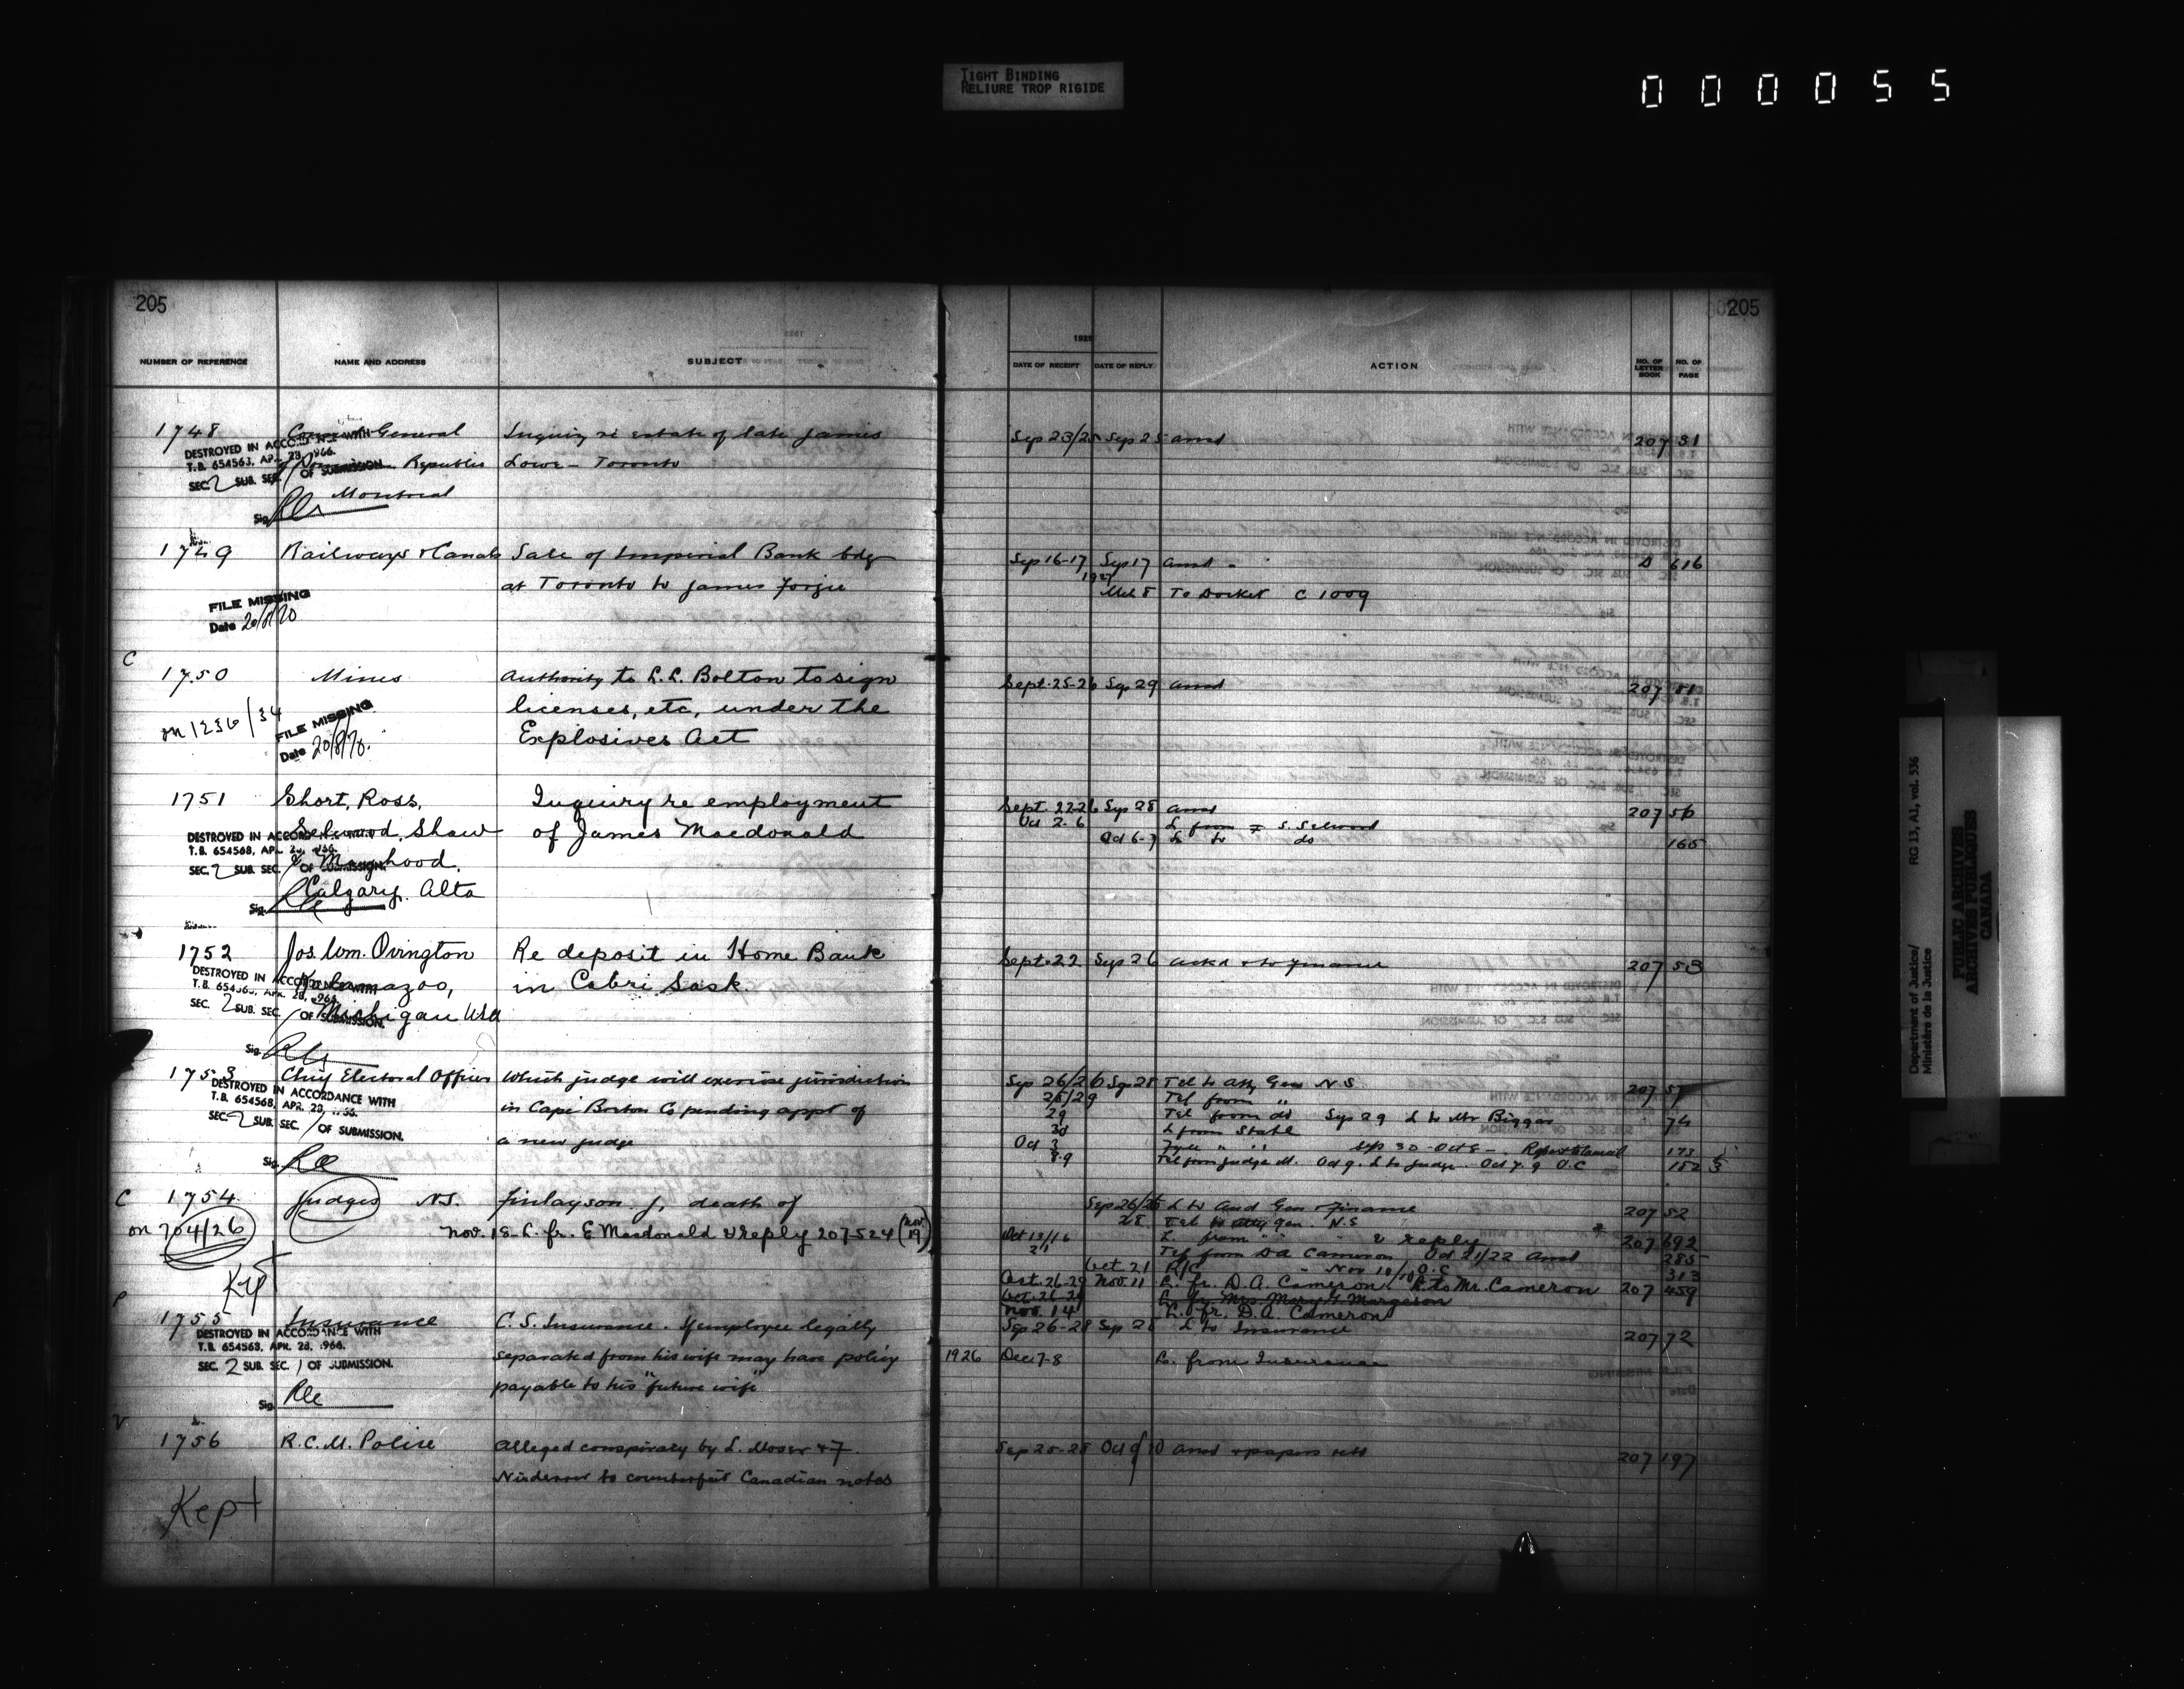 TIGHT BINDING
RELIURE TROP RIGIDE
000055
205
205
NUMBER OF REFERENCE NAME AND ADDRESS SUBJECT
1925
DATE OF RECEIPT DATE OF REPLY ACTION NO. OF LETTER BOOK NO. OF PAGE
1748 General Inquiry re estate of late James Sep 23/25 Sep 25 ansd 207 31
DESTROYED IN ACCORDANCE WITH
T.B. 654563, APR. 28, 1966.
Republic Lowe - Toronto
SEC. 2 SUB. SEC. / OF SUBMISSION.
Montreal
Sig.
1749 Railways & Canals Sale of Imperial Bank bdg Sep 16-17 Sep 17 ansd - D 616
at Toronto to James Forgie 1927 Mch 8 To Docket C 1009
FILE MISSING
Date 20/8/70
C
1750 Mines Authority to L.L. Bolton to sign Sept. 25-26 Sep 29 ansd 207 81
on 1236/34 licenses, etc, under the
FILE MISSING
Date 20/8/70. Explosives Act
1751 Short, Ross, Inquiry re employment Sept. 22-26 Sep 28 ansd 207 56
Selwood, Shaw of James Macdonald Oct 2-6 L from F S. Selwood
DESTROYED IN ACCORDANCE WITH
T.B. 654568, APR. 28, 1966.
Oct 6-7 L to do 165
& Mayhood,
SEC. 2 SUB. SEC. / OF SUBMISSION.
Calgary. Alta
Sig.
1752 Jos. Wm. Ovington Re deposit in Home Bank Sept. 22 Sep 26 ackd & to Finance 207 53
DESTROYED IN ACCORDANCE WITH
Kalamazoo, in Cabri Sask.
T.B. 654568, APR. 28, 1966.
SEC. 2 SUB. SEC. / OF SUBMISSION.
Michigan USA
Sig.
1753 Chief Electoral Officer Which judge will exercise jurisdiction Sep 26/26 Sep 28 Tel to Atty Gen N.S 207 57
DESTROYED IN ACCORDANCE WITH
T.B. 654568, APR. 28, 1966.
28/29 Tel from "
in Cape Breton Co pending appt of 29 Tel from do Sep 29 L to Mr Biggar 74
SEC. 2 SUB. SEC. / OF SUBMISSION.
30 L from State
a new judge Oct 3 Sep 30 - Oct 5 - Report to Council 173
8.9 Tel from Judge M. Oct 9. L to Judge. Oct 7. 9 O.C 182
Sig.
C 1754 Judges N.S. Finlayson J, death of Sep 26/26 L to Aud Gen & Finance 207 52
28 Tel to Atty Gen. N.S
on 704/26 Nov. 18 - L. fr. E Macdonald & reply 207-524 (Nov. 19)
Oct 13/16 L. from " " & reply 207 692
21 Tel from D.A Cameron Oct 21/22 Ansd 285
Oct. 21 R/C " Nov 10/10 O.C 313
Kept
Oct. 26-29 Nov. 11 L. fr. D.A. Cameron. L. to Mr. Cameron 207 459
Oct. 26-29 L. fr. Mrs. Mary G. Margeson
Nov. 14 L. fr. D.A. Cameron
P
1755 Insurance C.S. Insurance. If employee legally Sep 26-28 Sep 28 L to Insurance 207 72
DESTROYED IN ACCORDANCE WITH
T.B. 654568, APR. 28, 1966.
SEC. 2 SUB. SEC. 1 OF SUBMISSION.
separated from his wife may have policy 1926 Dec 7-8 L. from Insurance
payable to his "future wife"
Sig.
V
1756 R.C.M. Police Alleged conspiracy by L. Moser & F. Sep 25-28 Oct 9/10 ansd & papers retd 207 197
to counterfeit Canadian notes
Kept
Department of Justice/
Ministère de la Justice
RG 13, A1, vol. 536
PUBLIC ARCHIVES
ARCHIVES PUBLIQUES
CANADA